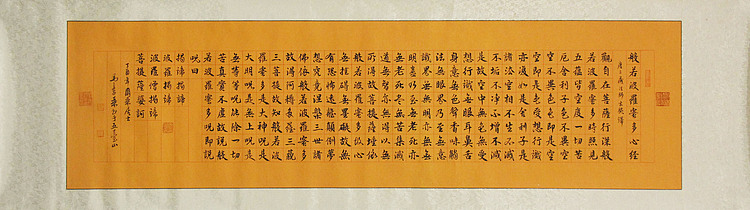 般若波羅蜜多心經
唐三藏法師玄奘譯
觀自在菩薩行深般
若波羅蜜多時照見
五蘊皆空度一切苦
厄舍利子色不異空
空不異色色即是空
空即是色受想行識
亦復如是舍利子是
諸法空相不生不滅
不垢不淨不增不減
是故空中無色無受
想行識無眼耳鼻舌
身意無色聲香味觸
法無眼界乃至無意
識界無無明亦無無
明盡乃至無老死亦
無老死盡無苦集滅
道無智亦無得以無
所得故菩提薩埵依
般若波羅蜜多故心
無罣礙無罣礙故無
有恐怖遠離顛倒夢
想究竟涅槃三世諸
佛依般若波羅蜜多
故得阿耨多羅三藐
三菩提故知般若波
羅蜜多是大神呪是
大明呪是無上呪是
無等等呪能除一切
苦真實不虛故說般
若波羅蜜多呪即說
呪曰
揭諦揭諦
波羅揭諦
波羅僧揭諦
菩提薩婆訶